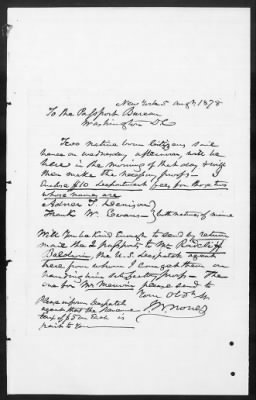 New York 5 Augt 1878
To the Passport Bureau
Washington D.C
Two native born Citizens sail
hence on Wednesday afternoon, will be
here in the morning of that day & will
then make the necessary proofs - I
Enclose $10 department fees for those two
whose names are
Frank W. } both natives of
Will You be kind Enough to send by return
mail the 2 passports to Mr Radcliff
Baldwin, the U.S. despatch agent
here from whom I can get them on
handing him satisfactory proofs - The
one for Mr please send to
Your Obdt St.
Please inform despatch
agent that the Revenue
tax of $5 on each is
paid to You